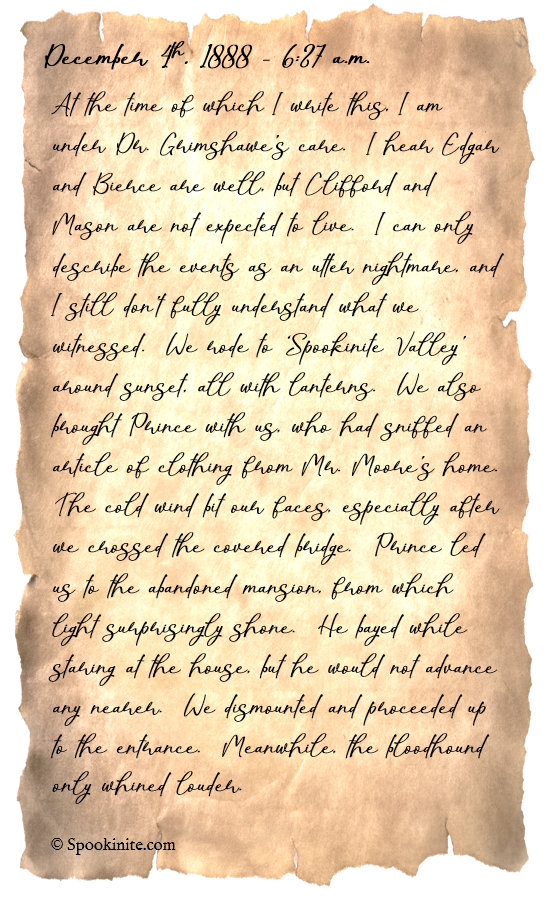 December 4th, 1888 - 6:27 a.m.
At the time of which I write this, I am
under Dr. Grimshawe's care. I hear Edgar
and Bierce are well, but Clifford and
Mason are not expected to live. I can only
describe the events as an utter nightmare, and
I still don't fully understand what we
witnessed. We rode to 'Spookinite Valley'
around sunset, all with lanterns. We also
brought Prince with us, who had sniffed an
article of clothing from Mr. Moore's home.
The cold wind bit our faces, especially after
we crossed the covered bridge. Prince led
us to the abandoned mansion, from which
light surprisingly shone. He bayed while
staring at the house, but he would not advance
any nearer. We dismounted and proceeded up
to the entrance. Meanwhile, the bloodhound
only whined louder.
© Spookinite.com